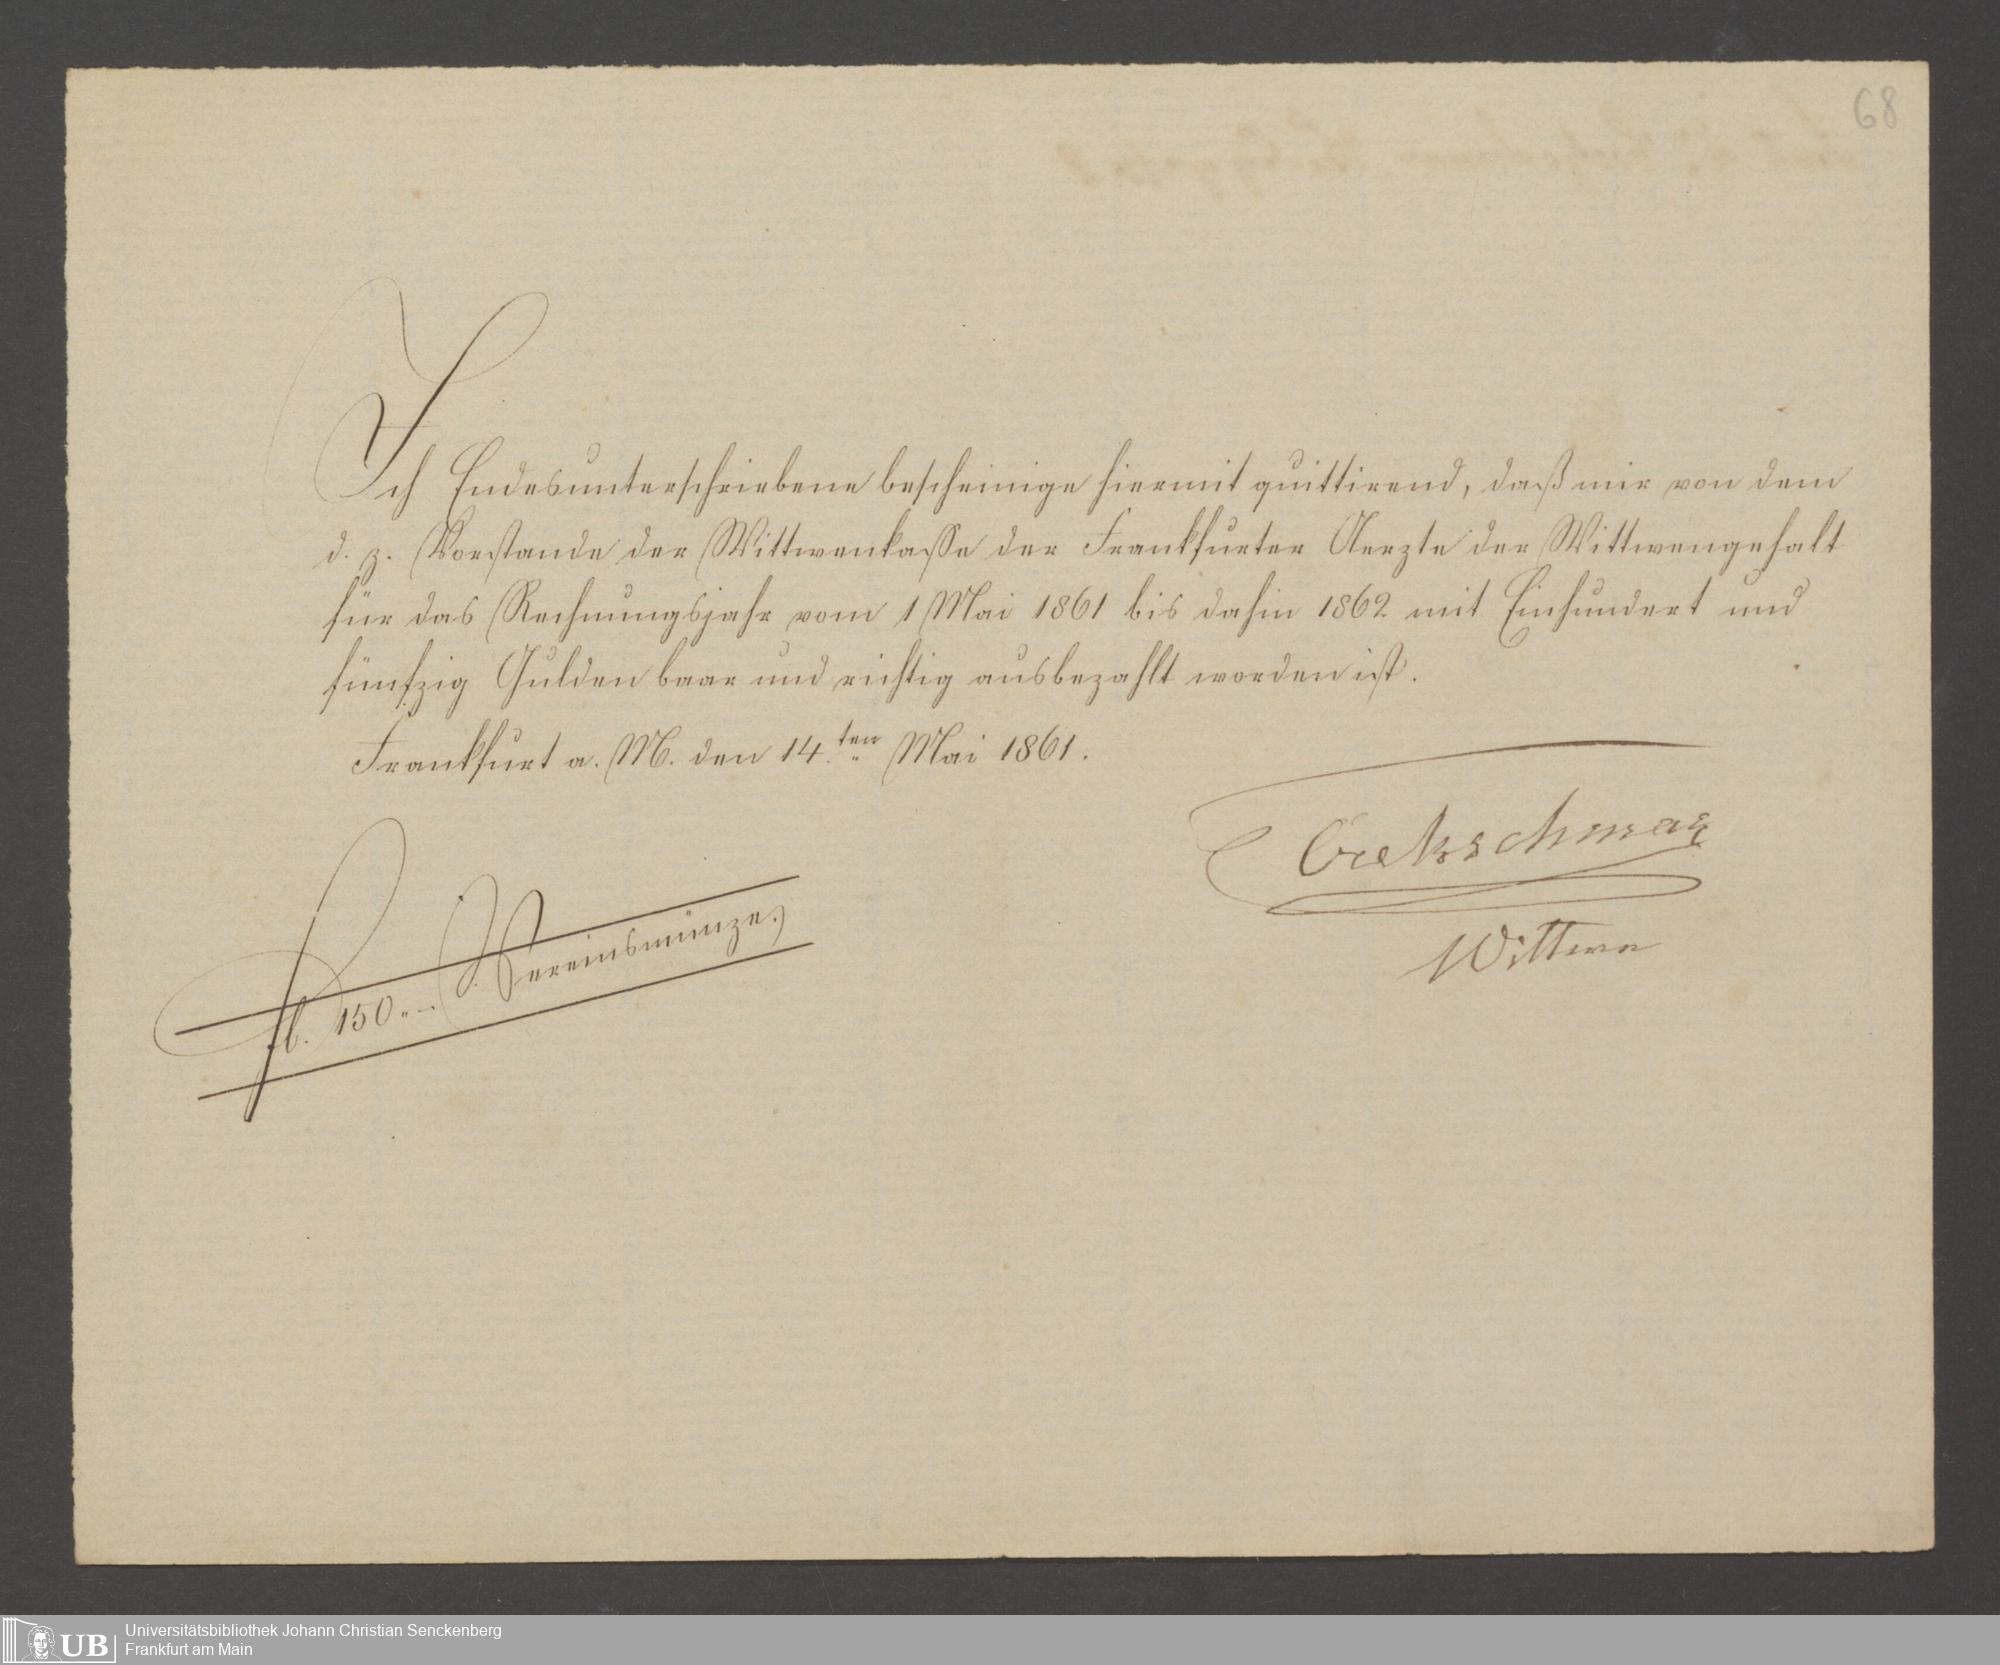 68
Ich Endesunterschriebene bescheinige hiermit quittirend, daß mir von dem
d. z. Vorstande der Wittwenkasse der Frankfurter Aerzte der Wittwengehalt
für das Rechnungsjahr vom 1 Mai 1861 bis dahin 1862 mit Einhundert und
fünfzig Gulden baar und richtig ausbezahlt worden ist.
Frankfurt a. M. den 14.ten Mai 1861.
Wittwe
fl. 150.- (Vereinsmünze)
UB
Universitätsbibliothek Johann Christian Senckenberg
Frankfurt am Main